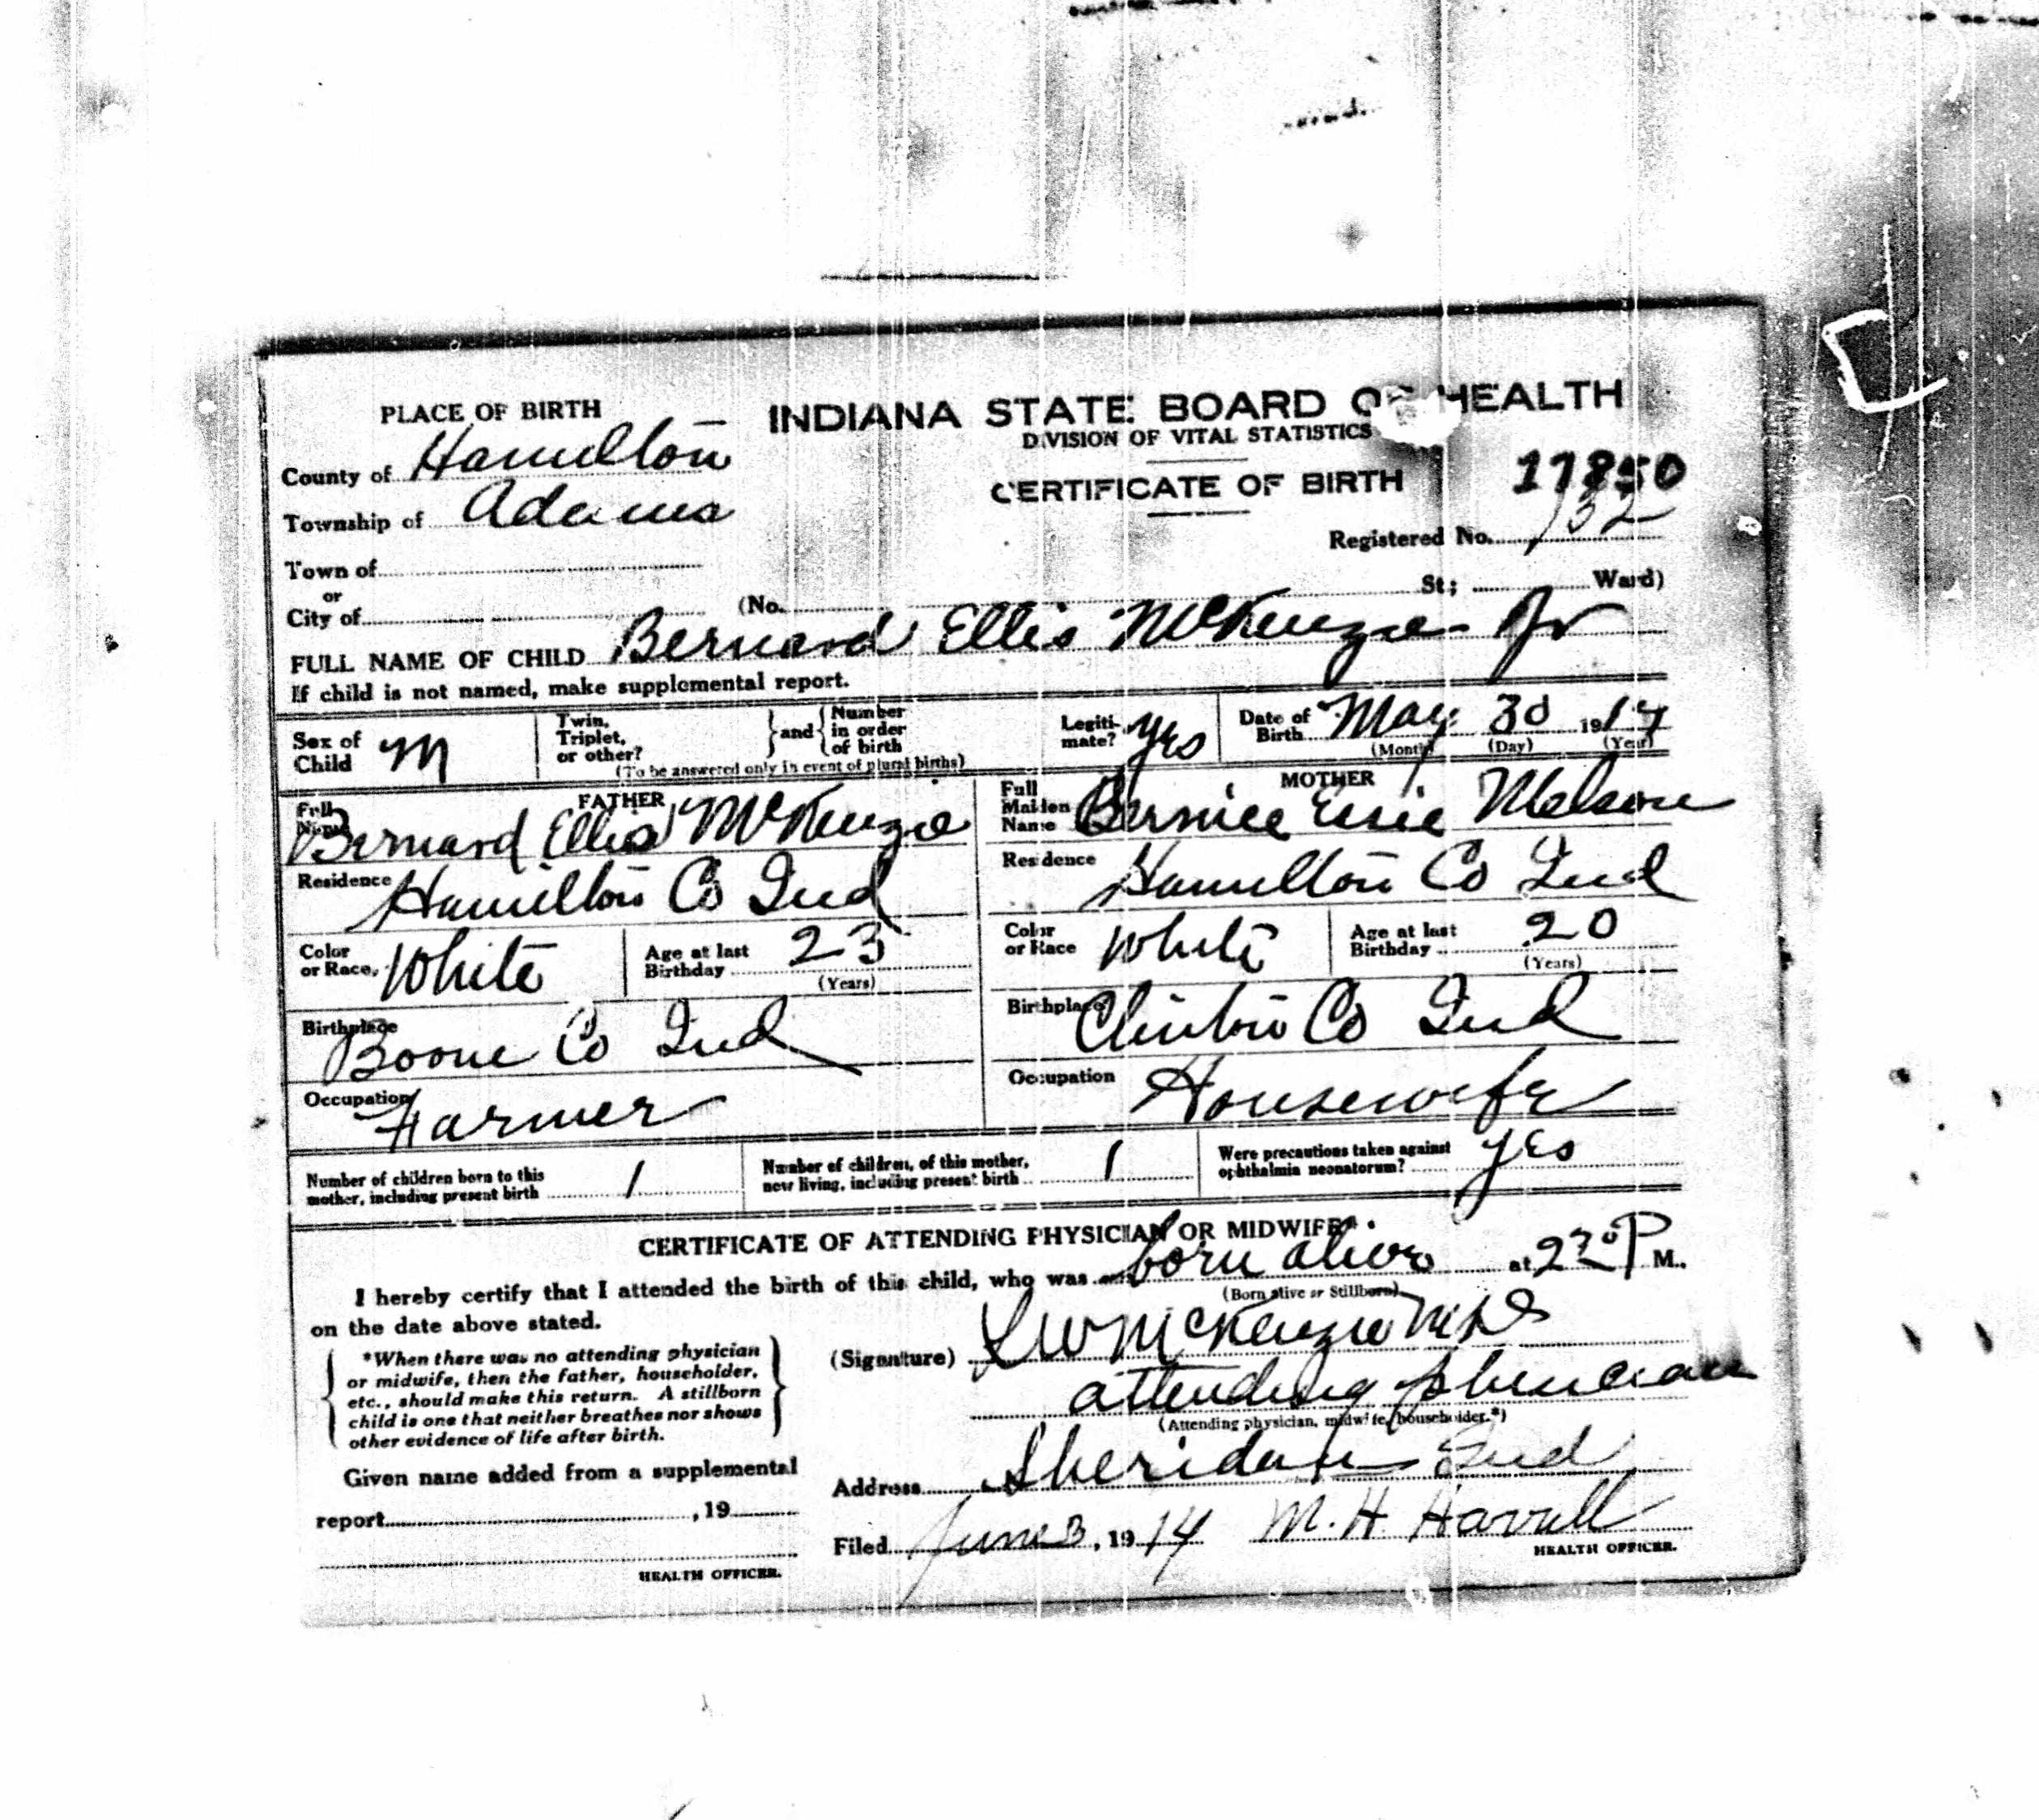 PLACE OF BIRTH
INDIANA STATE BOARD OF HEALTH
DIVISION OF VITAL STATISTICS
County of Hamilton
CERTIFICATE OF BIRTH 17850
Township of Adams
Registered No. 132
Town of
or
City of (No. St; Ward)
FULL NAME OF CHILD Bernard Ellis McKenzie Jr
If child is not named, make supplemental report.
Sex of Child M
Twin, Triplet, or other? and Number in order of birth
(To be answered only in event of plural births)
Legitimate? yes
Date of Birth May 30 1914
(Month) (Day) (Year)
FATHER
Full Name Bernard Ellis McKenzie
Residence Hamilton Co Ind
Color or Race, White
Age at last Birthday 23
(Years)
Birthplace Boone Co Ind
Occupation Farmer
MOTHER
Full Maiden Name Bernice Essie
Residence Hamilton Co Ind
Color or Race White
Age at last Birthday 20
(Years)
Birthplace Clinton Co Ind
Occupation Housewife
Number of children born to this mother, including present birth 1
Number of children, of this mother, now living, including present birth 1
Were precautions taken against ophthalmia neonatorum? yes
CERTIFICATE OF ATTENDING PHYSICIAN OR MIDWIFE*
I hereby certify that I attended the birth of this child, who was born alive at 2 30 P M.
(Born alive or Stillborn)
on the date above stated.
*When there was no attending physician
or midwife, then the father, householder,
etc., should make this return. A stillborn
child is one that neither breathes nor shows
other evidence of life after birth.
(Signature) McKenzie MD
attending physician
(Attending physician, midwife, householder.*)
Given name added from a supplemental
report , 19
HEALTH OFFICER.
Address Sheridan Ind
Filed June 3, 1914 M. H.
HEALTH OFFICER.